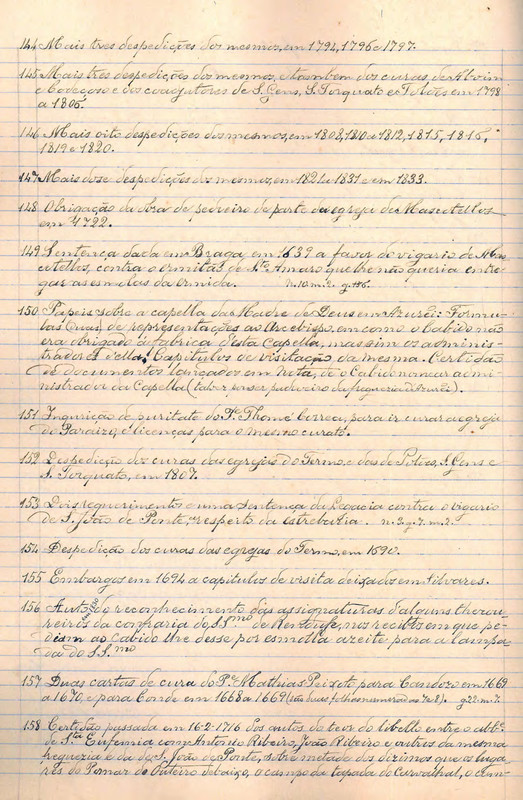 144 Mais tres despedições dos mesmos, em 1794, 1796 e 1797.
145 Mais tres despedições dos mesmos, e tambem dos curas, de Aboim
e Codeçoso e dos coadjutores de S. Gens, S. Torquato e em 1798
a 1806.
146 Mais oito despedições dos mesmos, em 1808, 1810 a 1812, 1815, 1816,
1819 e 1820.
147 Mais dose despedições dos mesmos, em 1821 a 1831 e em 1833.
148 Obrigação da obra de pedreiro da parte da egreja de Mascotellos
em 1722.
149 Sentença dada em Braga em 1639 a favor do vigario de Mas-
cotellos, contra o ermitão de Sto Amaro que lhe não queria entre-
gar as esmolas da ermida. n.10. m.2. g.
150 Papeis sobre a capella da Madre de Deus em Azurei: Formu-
las (duas) de representações ao Arcebispo, em como o Cabido não
era obrigado á fabrica d'esta Capella, mas sim os adminis-
tradores d'ella; Capitulos de visitação da mesma. Certidão
de documentos lançados em Nota, de o Cabido nomear admi-
nistrador da Capella (talvez por ser padroeiro da freguezia d'Azurei).
151 Inquirição de puritate do Pe Thomé Correa, para ir curar a egreja
de Paraizo, e licenças para o mesmo curato.
152 Despedição dos curas das egrejas do Termo, e das de S. Gens e
S. Torquato, em 1807.
153 Dois requerimentos e uma sentença da Legacia contra o vigario
de S. João de Ponte, a respeito da estrebaria. n.3. g.7. m.2.
154 Despedição dos curas das egrejas do Termo, em 1690.
155 Embargos em 1694 a capitulos de visita deixados em Silvares.
156 Auto do reconhecimento das assignaturas d'alguns thesou-
reiros da confraria do SSmo de Rendufe, nos recibos em que pe-
diam ao Cabido lhe desse por esmolla azeite para a lampa-
da do SSmo
157 Duas cartas de cura do Pe Mathias Peixoto para Candozo em 1669
a 1670, e para Conde em 1668 a 1669 (são duas folhas numeradas 7 e 8). g.22. m.2.
158 Certidão passada em 16-2-1716 dos autos do teor do libello entre o abbe
de Sta Eufemia com Antonio Ribeiro, João Ribeiro e outros da mesma
freguezia e da de S. João de Ponte, sobre metade dos dizimos que os luga-
res do Pomar do Outeiro debaixo, o campo da tapada do Carvalhal, o